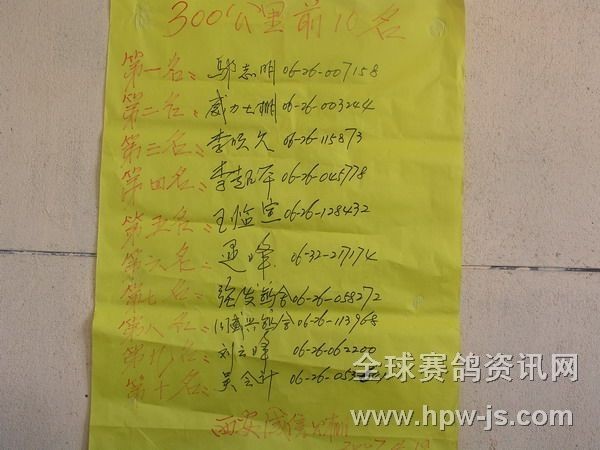 300公里前10名
第一名: 鄢志明 06-26-007158
第二名: 威力士棚 06-26-003244
第三名: 李 久 06-26-115873
第四名: 李 军 06-26-045778
第五名: 王监宣 06-26-128432
第六名: 峰 06-32-217174
第七名: 张俊鸽舍 06-26-058272
第八名: 盛兴鸽舍 06-26-113968
第九名: 刘云峰 06-26-062200
第十名: 吴会计 06-26-053
西安国信
全球赛鸽资讯网
www.hpw-js.com